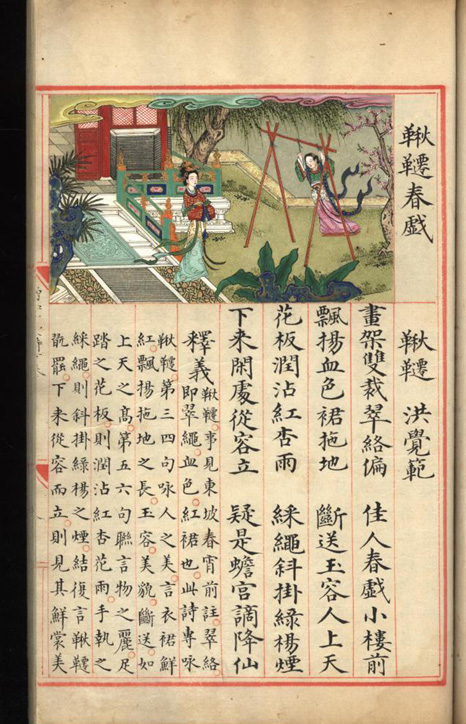 鞦韆春戲
鞦韆 洪覺範
畫架雙裁翠絡偏 佳人春戲小樓前
飄揚血色裙拖地 斷送玉容人上天
花板潤沾紅杏雨 綵繩斜掛綠楊煙
下來閑處從容立 疑是蟾宮謫降仙
釋義
鞦韆事見東坡春宵前註翠絡
即翠繩血色紅裙也此詩專咏
鞦韆第三四句咏人之美言衣裙鮮
紅飄揚拖地之長玉容美貌斷送如
上天之高第五六句聯言物之麗足
踏之花板則潤沾紅杏花雨手執之
綵繩則斜掛綠楊之煙結復言鞦韆
翫罷下來從容而立則見其鮮裳美